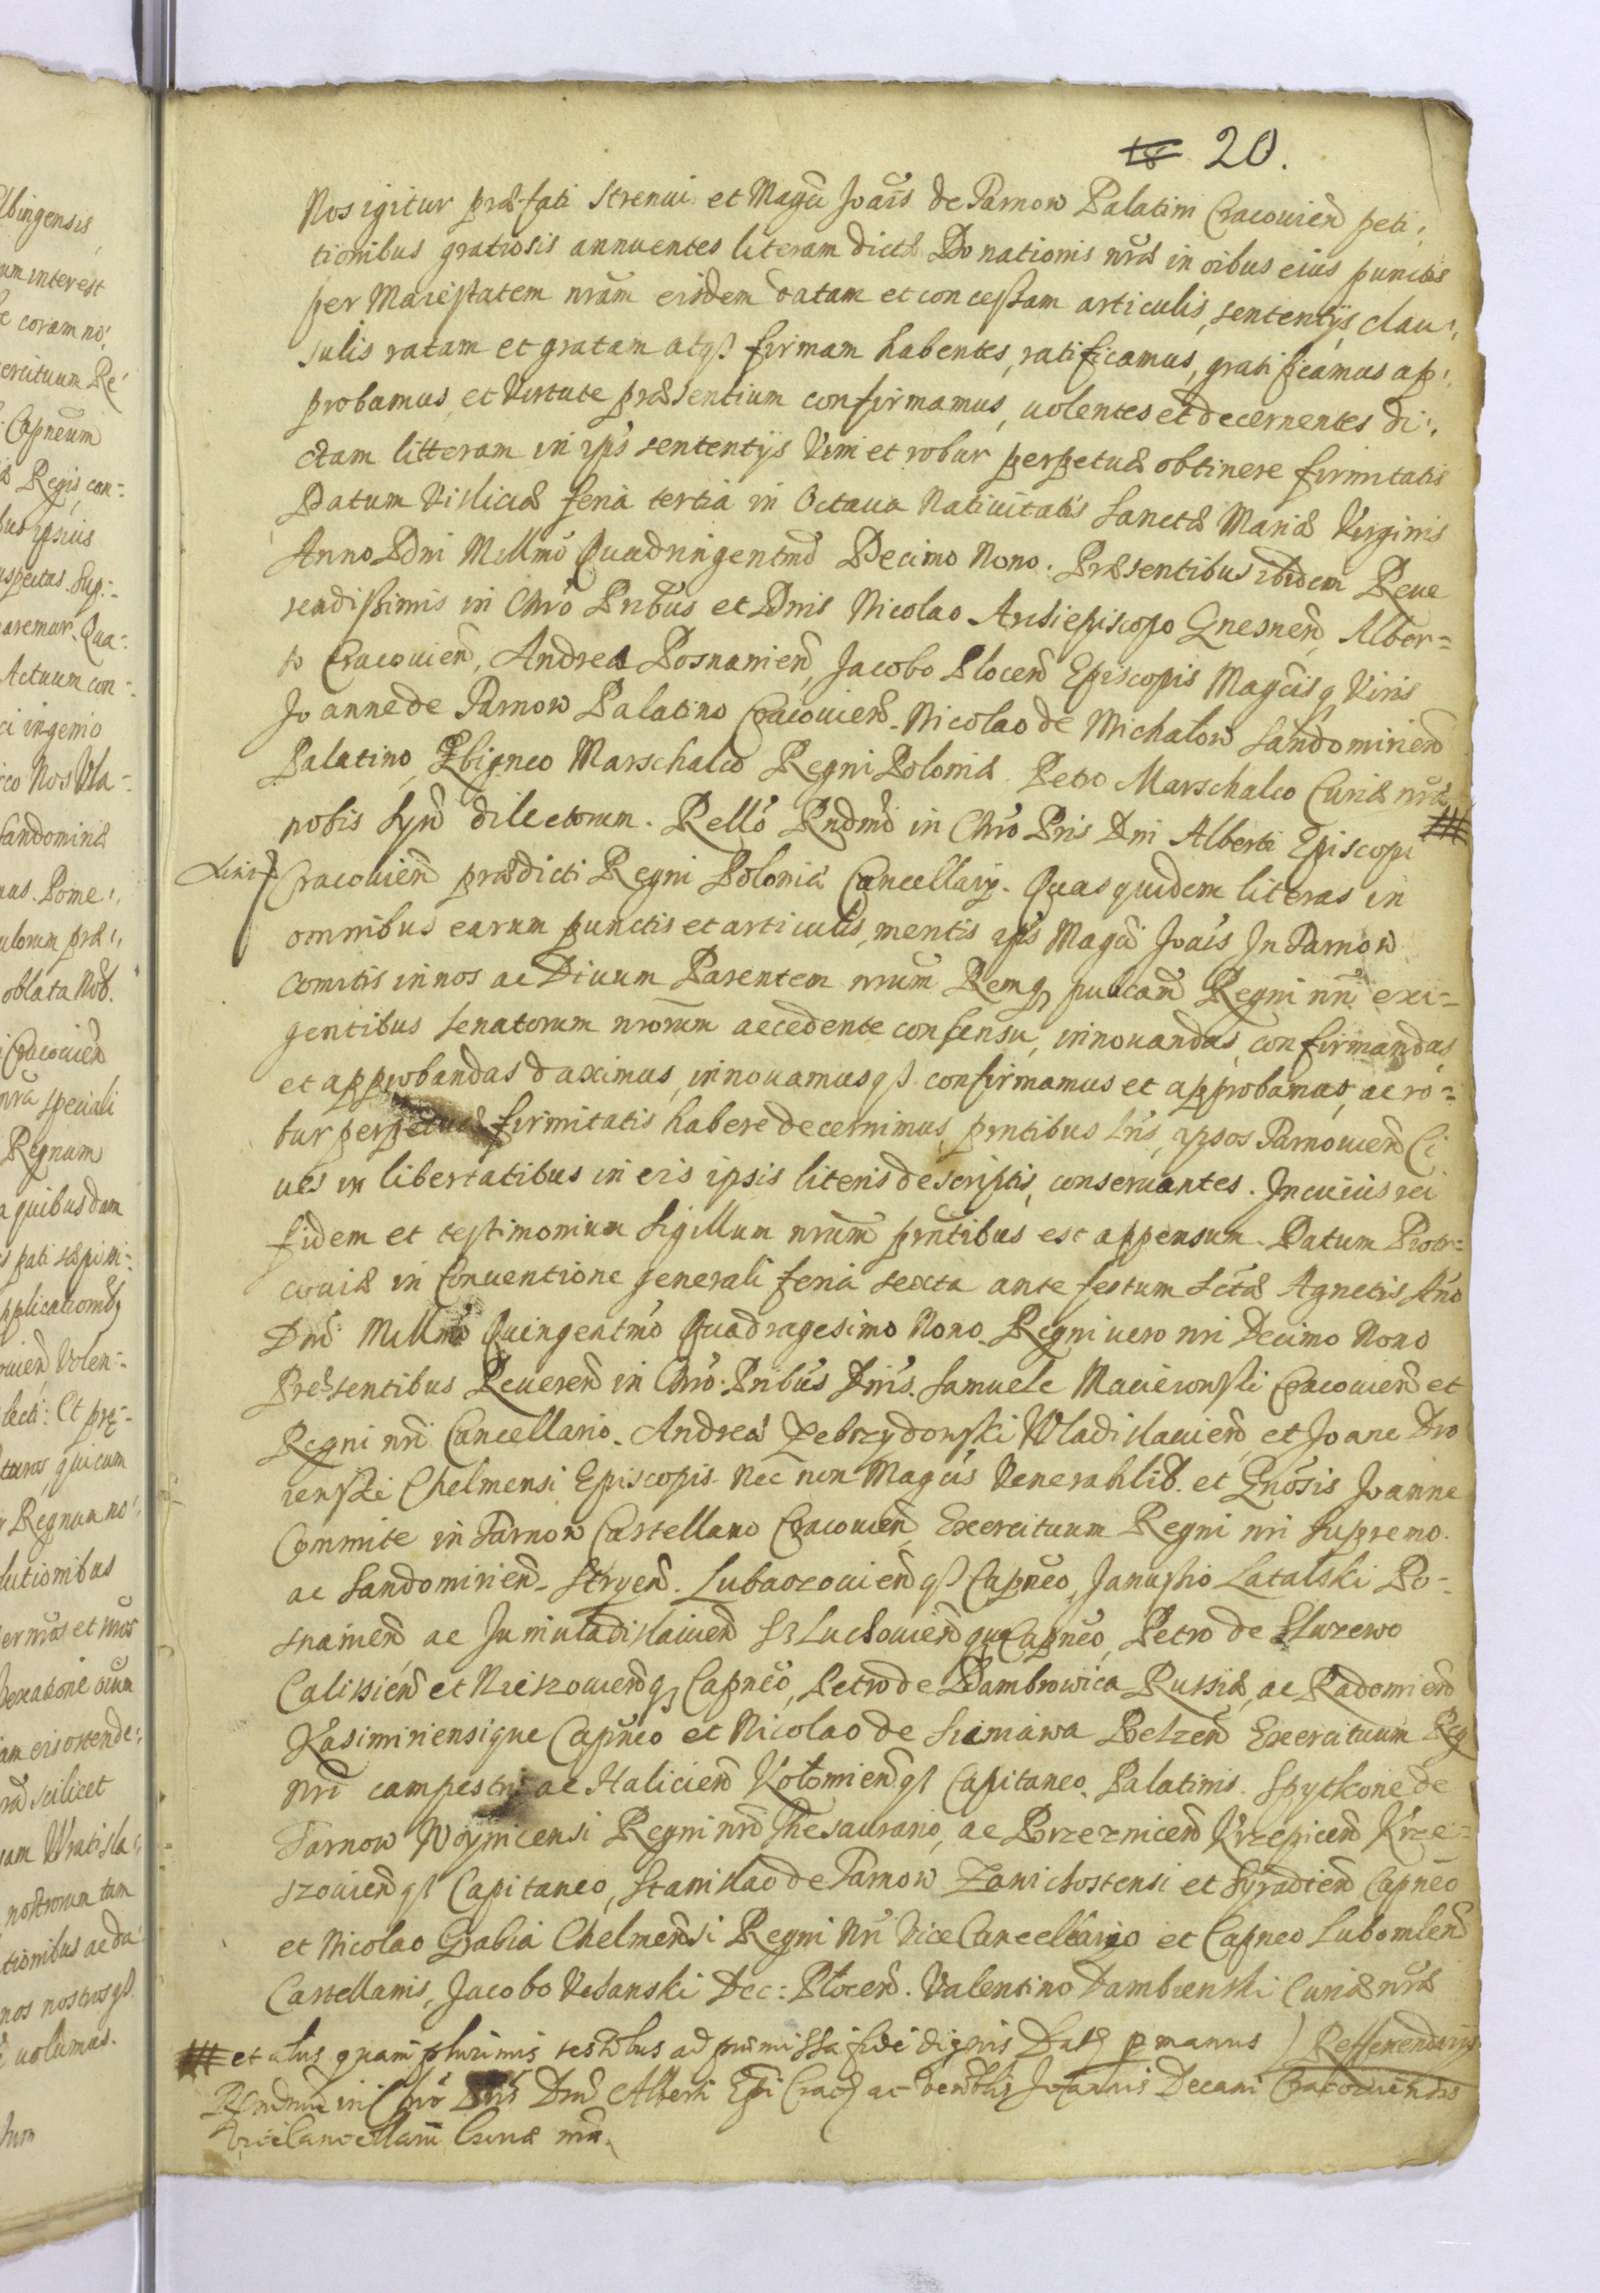 18 20.
Nos igitur præfati Strenui et Magci Joais de Tarnow Palatini Cracovien peti:
tionibus gratiosis annuentes literam dictæ Donationis nræ in oibus eius punctis
per Maiestatem nram eisdem datam et concessam articulis, sententijs, clau:
sulis ratam et gratam atqȝ firmam habentes, ratificamus, gratificamus ap:
probamus, et virtute præsentium confirmamus, volentes et decernentes di:
ctam litteram in ipis sententijs vim et robur perpetuæ obtinere firmitatis
Datum Visliciæ feria tertia in Octava Nativitatis Sanctæ Mariæ Virginis
Anno Dni Millmo Quadringentmo Decimo Nono. Præsentibus ibidem Reve
rendissimis in Chro Pribus et Dnis Nicolao Archiepiscopo Gnesnen, Alber=
to Cracovien, Andrea Posnanien, Jacobo Plocen Episcopis Magcisq Viris
Joanne de Tarnow Palatino Cracovien. Nicolao de Michalow Sandomirien
Palatino, Sbigneo Marschalco Regni Poloniæ Petro Marschalco Curiæ nræ
nobis Syn dilectorum. Rello Rndmi in Chro Pris Dni Alberti Episcopi
Cracovien prædicti Regni Polonia Cancellarij. Quas quidem literas in
omnibus earum punctis et articulis, mentis ipis Magci Joais In Tarnow
Comitis in nos ac Divum Parentem nrum Remqȝ publcam Regni nri exi=
gentibus Senatorum nrorum accedente consensu, innovandas, confirmandas,
et approbandas duximus, innovamusqȝ confirmamus et approbamus, ac ro=
bur perpetuæ firmitatis habere decernimus, pntibus lris, ipsos Tarnovien Ci
ves in libertatibus in eis ipsis literis descriptis, conservantes. In cuius rei
fidem et testimonium Sigillum nrum pntibus est appensum. Datum Piotr=
coviæ in Conventione generali feria sexta ante festum Sctæ Agnetis Ano
Dni Millmo Quingentmo Quadragesimo Nono. Regni vero nri Decimo Nono
Presentibus Reveren in Chro Pribus Dnis. Samuele Macieiowski Cracovien et
Regni nri Cancellario. Andrea Zebrzydowski Wladislavien, et Joane Dro
ienski Chelmensi Episcopis. Nec non Magcis Venerablib. et Gnosis Joanne
Commite in Tarnow Castellano Cracovien, Exercituum Regni nri Supremo.
ac Sandomirien. Stryen. Lubaczovienqȝ Capneo, Janussio Latalski Po=
snanien ac Juniuladislavien Szluchovien que Capneo, Petro de Sluzewo
Calissien et Mieiszovienqȝ Capneo, Petro de Dambrowica Russiæ, ac Radomien
Kasimiriensique Capneo et Nicolao de Siniawa Belzen Exercituum Reg
nri campestri ac Halicien Kolomienqȝ Capitaneo. Palatinis. Spytkone de
Tarnow Woynicensi Regni nri Thesaurario, ac Brzeznicen Krzepicen Krze=
szovienqȝ Capitaneo, Stanislao de Tarnow Zawichostensi et Syradien Capneo
et Nicolao Grabia Chelmensi Regni Nri Vice Cancellario et Capneo Lubomlen
Castellanis, Jacobo Uchanski Dec: Plocen. Valentino Dambienski Curiæ nræ
et alijs quam plurimis testibus ad præmissa fide dignis Datȝ p manus ) Refferendarijs
Rndmi in Chro Pris Dni Alberti Epi Crac ac Venblis Joannis Decani Cracoviensis
ViceCancellarii Curiæ nræ.